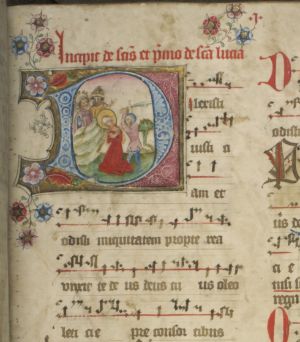 Incipit de scis et primo de sca lucia
ilexisti
iusti a
am et
odisti iniquitatem propte rea
unxit te de us deus tu us oleo
leti cie pre consor tibus
D
odisti
us de